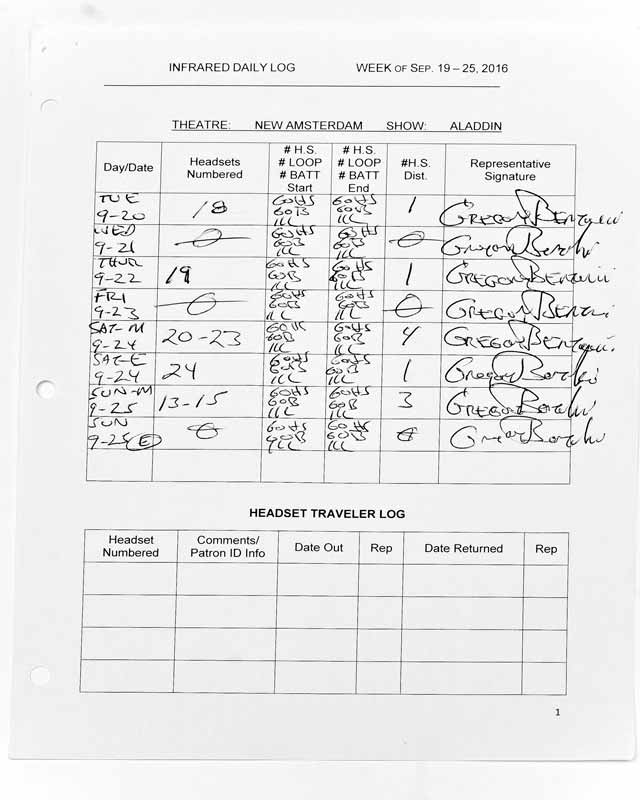 INFRARED DAILY LOG WEEK OF SEP. 19 – 25, 2016
THEATRE: NEW AMSTERDAM SHOW: ALADDIN
Day/Date
Headsets
Numbered
# H.S.
# LOOP
# BATT
Start
# H.S.
# LOOP
# BATT
End
#H.S.
Dist.
Representative
Signature
TUE
9-20
18
60HS
60B
1LL
60HS
60B
1LL
1
GREGORY
WED
9-21
0
60HS
60B
1LL
60HS
60B
1LL
0
THUR
9-22
19
60HS
60B
1LL
60HS
60B
1LL
1
GREGORY
FRI
9-23
0
60HS
60B
1LL
60HS
60B
1LL
0
GREGORY
SAT-M
9-24
20-23
60HS
60B
1LL
60HS
60B
1LL
4
GREGORY
SAT-E
9-24
24
60HS
60B
1LL
60HS
60B
1LL
1
GREGORY
SUN-M
9-25
13-15
60HS
60B
1LL
60HS
60B
1LL
3
GREGORY
SUN
9-25 E
0
60HS
60B
1LL
60HS
60B
1LL
0
HEADSET TRAVELER LOG
Headset
Numbered
Comments/
Patron ID Info
Date Out
Rep
Date Returned
Rep
1